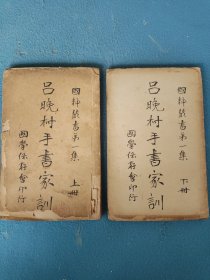 國粹叢書第一集
呂晚村手書家訓
上冊
國學保存會印行
國粹叢書第一集
呂晚村手書家訓
下冊
國學保存會印行